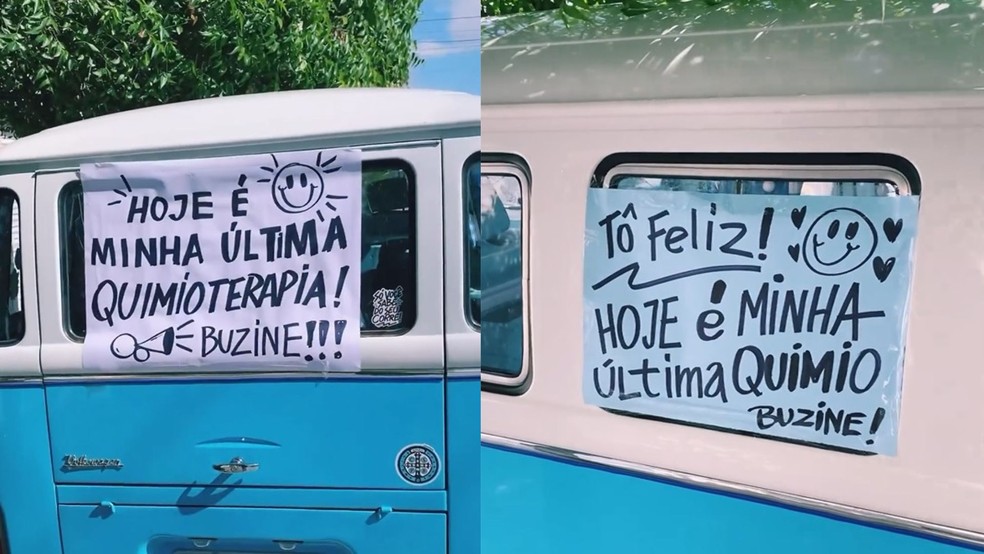 HOJE É
MINHA ÚLTIMA
QUIMIOTERAPIA!
BUZINE!!!
SÓ VOCÊ
SABE
DO SEU
CORRE
Volkswagen
TÔ FELIZ!
HOJE é MINHA
ÚLTIMA QUIMIO
BUZINE!